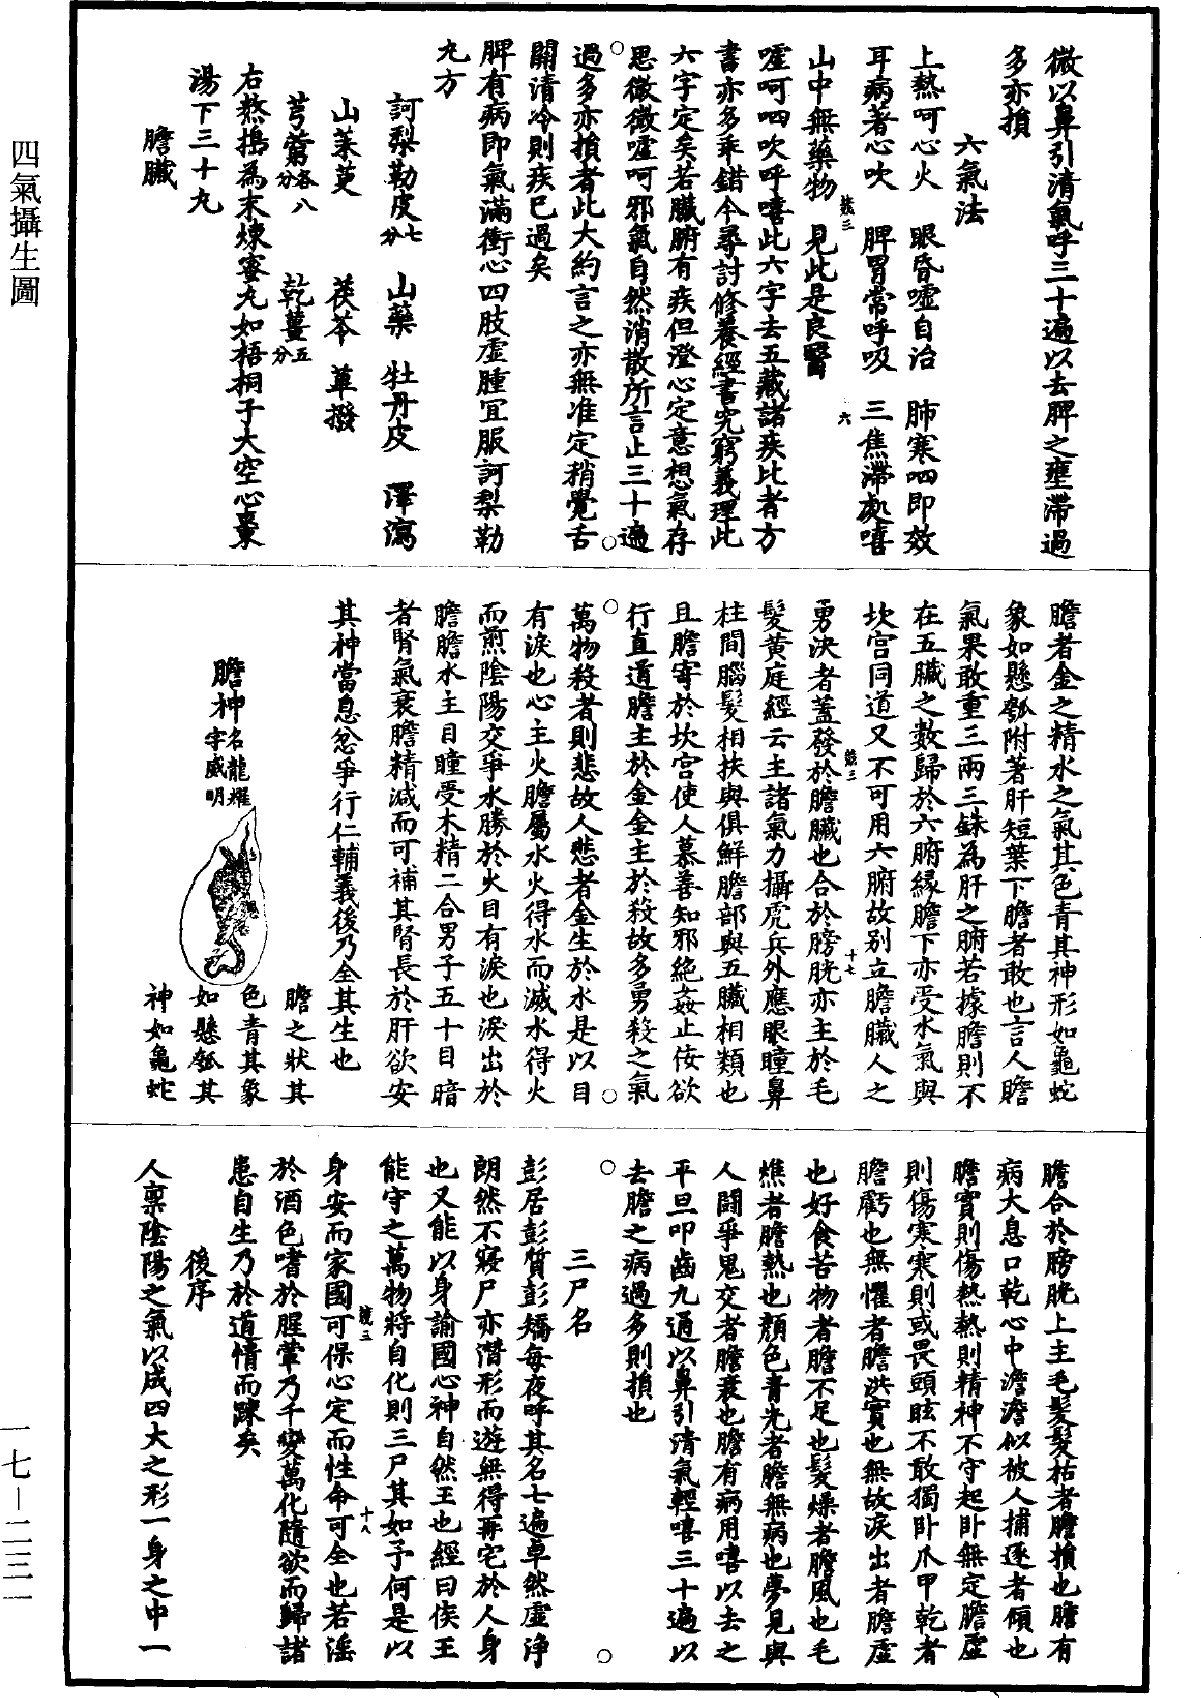 四氣攝生圖
微以鼻引清氣呼三十遍以去脾之壅滯過
多亦損
六氣法
上熱呵心火　眼昏噓自治　肺寒呬即效
耳病著心吹　脾胃常呼吸　三焦滯處嘻
山中無藥物　見此是良醫
號三　六
噓呵呬吹呼嘻此六字去五藏諸疾比者方
書亦多乖錯今尋討修養經書究窮義理此
六字定矣若臟腑有疾但澄心定意想氣存
思微微噓呵邪氣自然消散所言止三十遍
過多亦損者此大約言之亦無准定稍覺舌
開清冷則疾已過矣
脾有病即氣滿衝心四肢虛腫宜服訶梨勒
丸方
訶梨勒皮七分　山藥　牡丹皮　澤瀉
山茱萸　茯苓　蓽撥
芎藭各八分　乾薑五分
右熬搗為末煉蜜丸如梧桐子大空心棗
湯下三十丸
膽臟
膽者金之精水之氣其色青其神形如龜蛇
象如懸瓠附著肝短葉下膽者敢也言人膽
氣果敢重三兩三銖為肝之腑若據膽則不
在五臟之數歸於六腑緣膽下亦受水氣與
坎宮同道又不可用六腑故別立膽臟人之
勇決者蓋發於膽臟也合於膀胱亦主於毛
號三　十七
髮黃庭經云主諸氣力攝虎兵外應眼瞳鼻
柱間腦髮相扶與俱鮮膽部與五臟相類也
且膽寄於坎宮使人慕善知邪絕姦止佞欲
行直道膽主於金金主於殺故多勇殺之氣
萬物殺者則悲故人悲者金生於水是以目
有淚也心主火膽屬水火得水而滅水得火
而煎陰陽交爭水勝於火目有淚也淚出於
膽膽水主目瞳受木精二合男子五十目暗
者腎氣衰膽精減而可補其腎長於肝欲安
其神當息忿爭行仁輔義後乃全其生也
膽神名龍耀
字威明
膽之狀其
色青其象
如懸瓠其
神如龜蛇
膽合於膀胱上主毛髮髮枯者膽損也膽有
病大息口乾心中澹澹似被人捕逐者傾也
膽實則傷熱熱則精神不守起卧無定膽虛
則傷寒寒則或畏頭眩不敢獨卧爪甲乾者
膽虧也無懼者膽洪實也無故淚出者膽虛
也好食苦物者膽不足也髮燥者膽風也毛
燋者膽熱也顏色青光者膽無病也夢見與
人鬪爭鬼交者膽衰也膽有病用嘻以去之
平旦叩齒九通以鼻引清氣輕嘻三十遍以
去膽之病過多則損也
三尸名
彭居彭質彭矯每夜呼其名七遍卓然虛淨
朗然不寢尸亦潛形而遊無得再宅於人身
也又能以身諭國心神自然王也經曰侯王
能守之萬物將自化則三尸其如予何是以
身安而家國可保心定而性命可全也若淫
號三　十八
於酒色嗜於腥葷乃千變萬化隨欲而歸諸
患自生乃於道情而踈矣
後序
人稟陰陽之氣以成四大之形一身之中一
一七—二三一